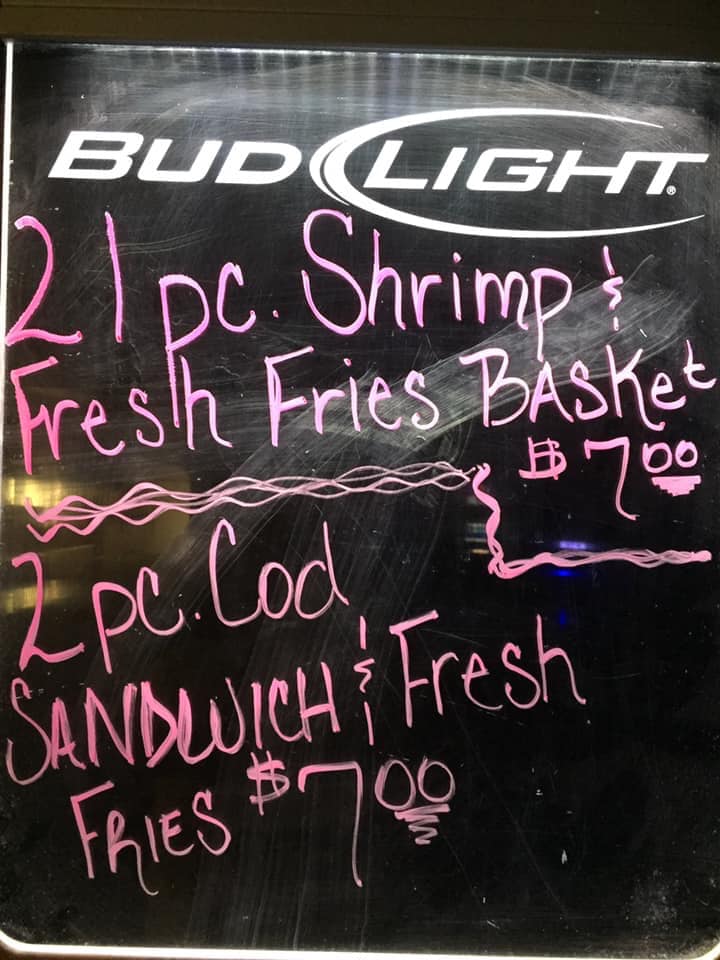 BUD LIGHT®
21 pc. Shrimp &
Fresh Fries BASKet
$7.00
2 pc. Cod
SANDWICH & Fresh
FRIES $7.00